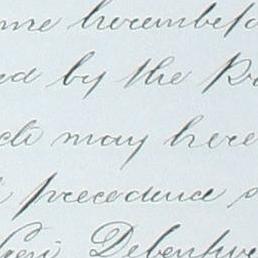 me hereinbefo
ed by the Pr
ch may here
precedence
Debenture